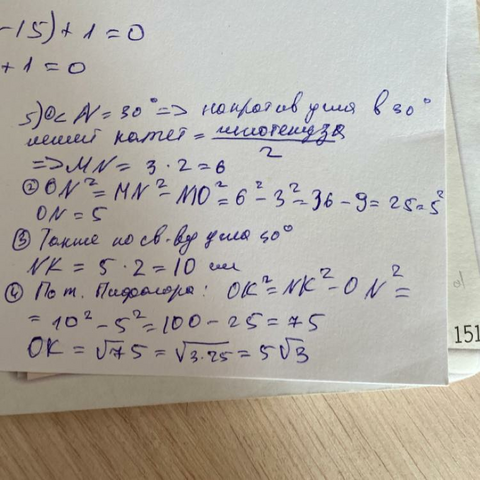 -15)+1=0
+1=0
5)① ∠N=30°=> напротив угла в 30°
лежит катет = гипотенуза
2
=>MN = 3·2=6
② ON²=MN²-MO²=6²-3²=36-9=25=5²
ON=5
③ Также по св-ву угла 30°
NK = 5·2=10 см
④ По т. Пифагора: OK²=NK²-ON²=
=10²-5²=100-25=75
OK=√75=√3·25=5√3
151